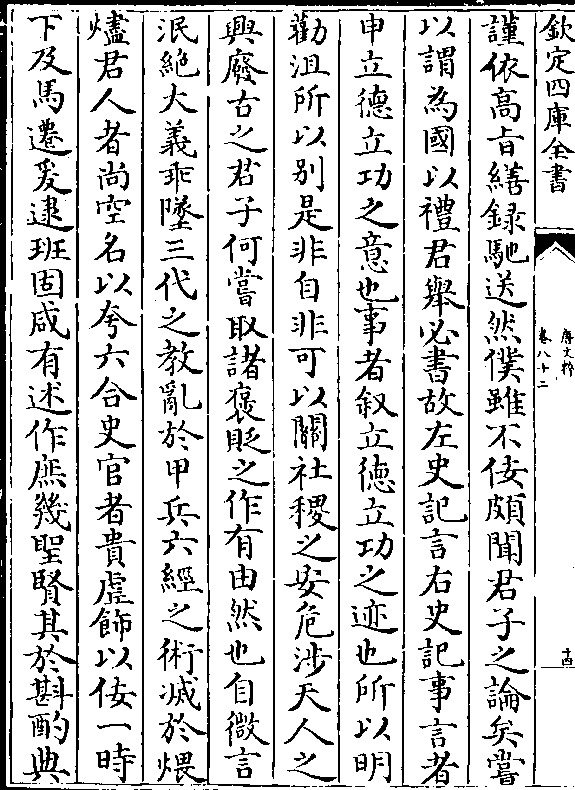 欽定四庫全書
唐文粹
卷八十二
十四
謹依高㫖繕録馳送然僕雖不佞頗聞君子之論矣嘗
以謂為國以禮君舉必書故左史記言右史記事言者
申立德立功之意也事者叙立德立功之迹也所以明
勸沮所以别是非自非可以關社稷之安危涉天人之
興廢古之君子何嘗取諸褒貶之作有由然也自微言
泯絶大義乖墜三代之教亂於甲兵六經之術滅於煨
燼君人者尚空名以夸六合史官者貴虚飾以佞一時
下及馬遷爰逮班固咸有述作庶幾聖賢其於斟酌典